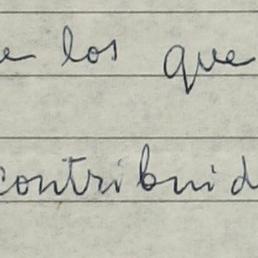 e los que
contribuid